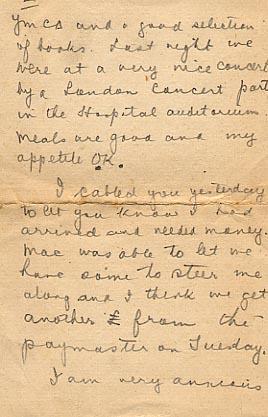 YMCA and a good selection
of books. Last night we
were at a very nice concert
by a London Concert part
in the Hospital auditorium.
Meals are good and my
appetite OK.
I cabled you yesterday
to let you know I had
arrived and needed money.
Mac was able to let me
have some to steer me
along and I think we get
another £ from the
paymaster on Tuesday.
I am very anxious